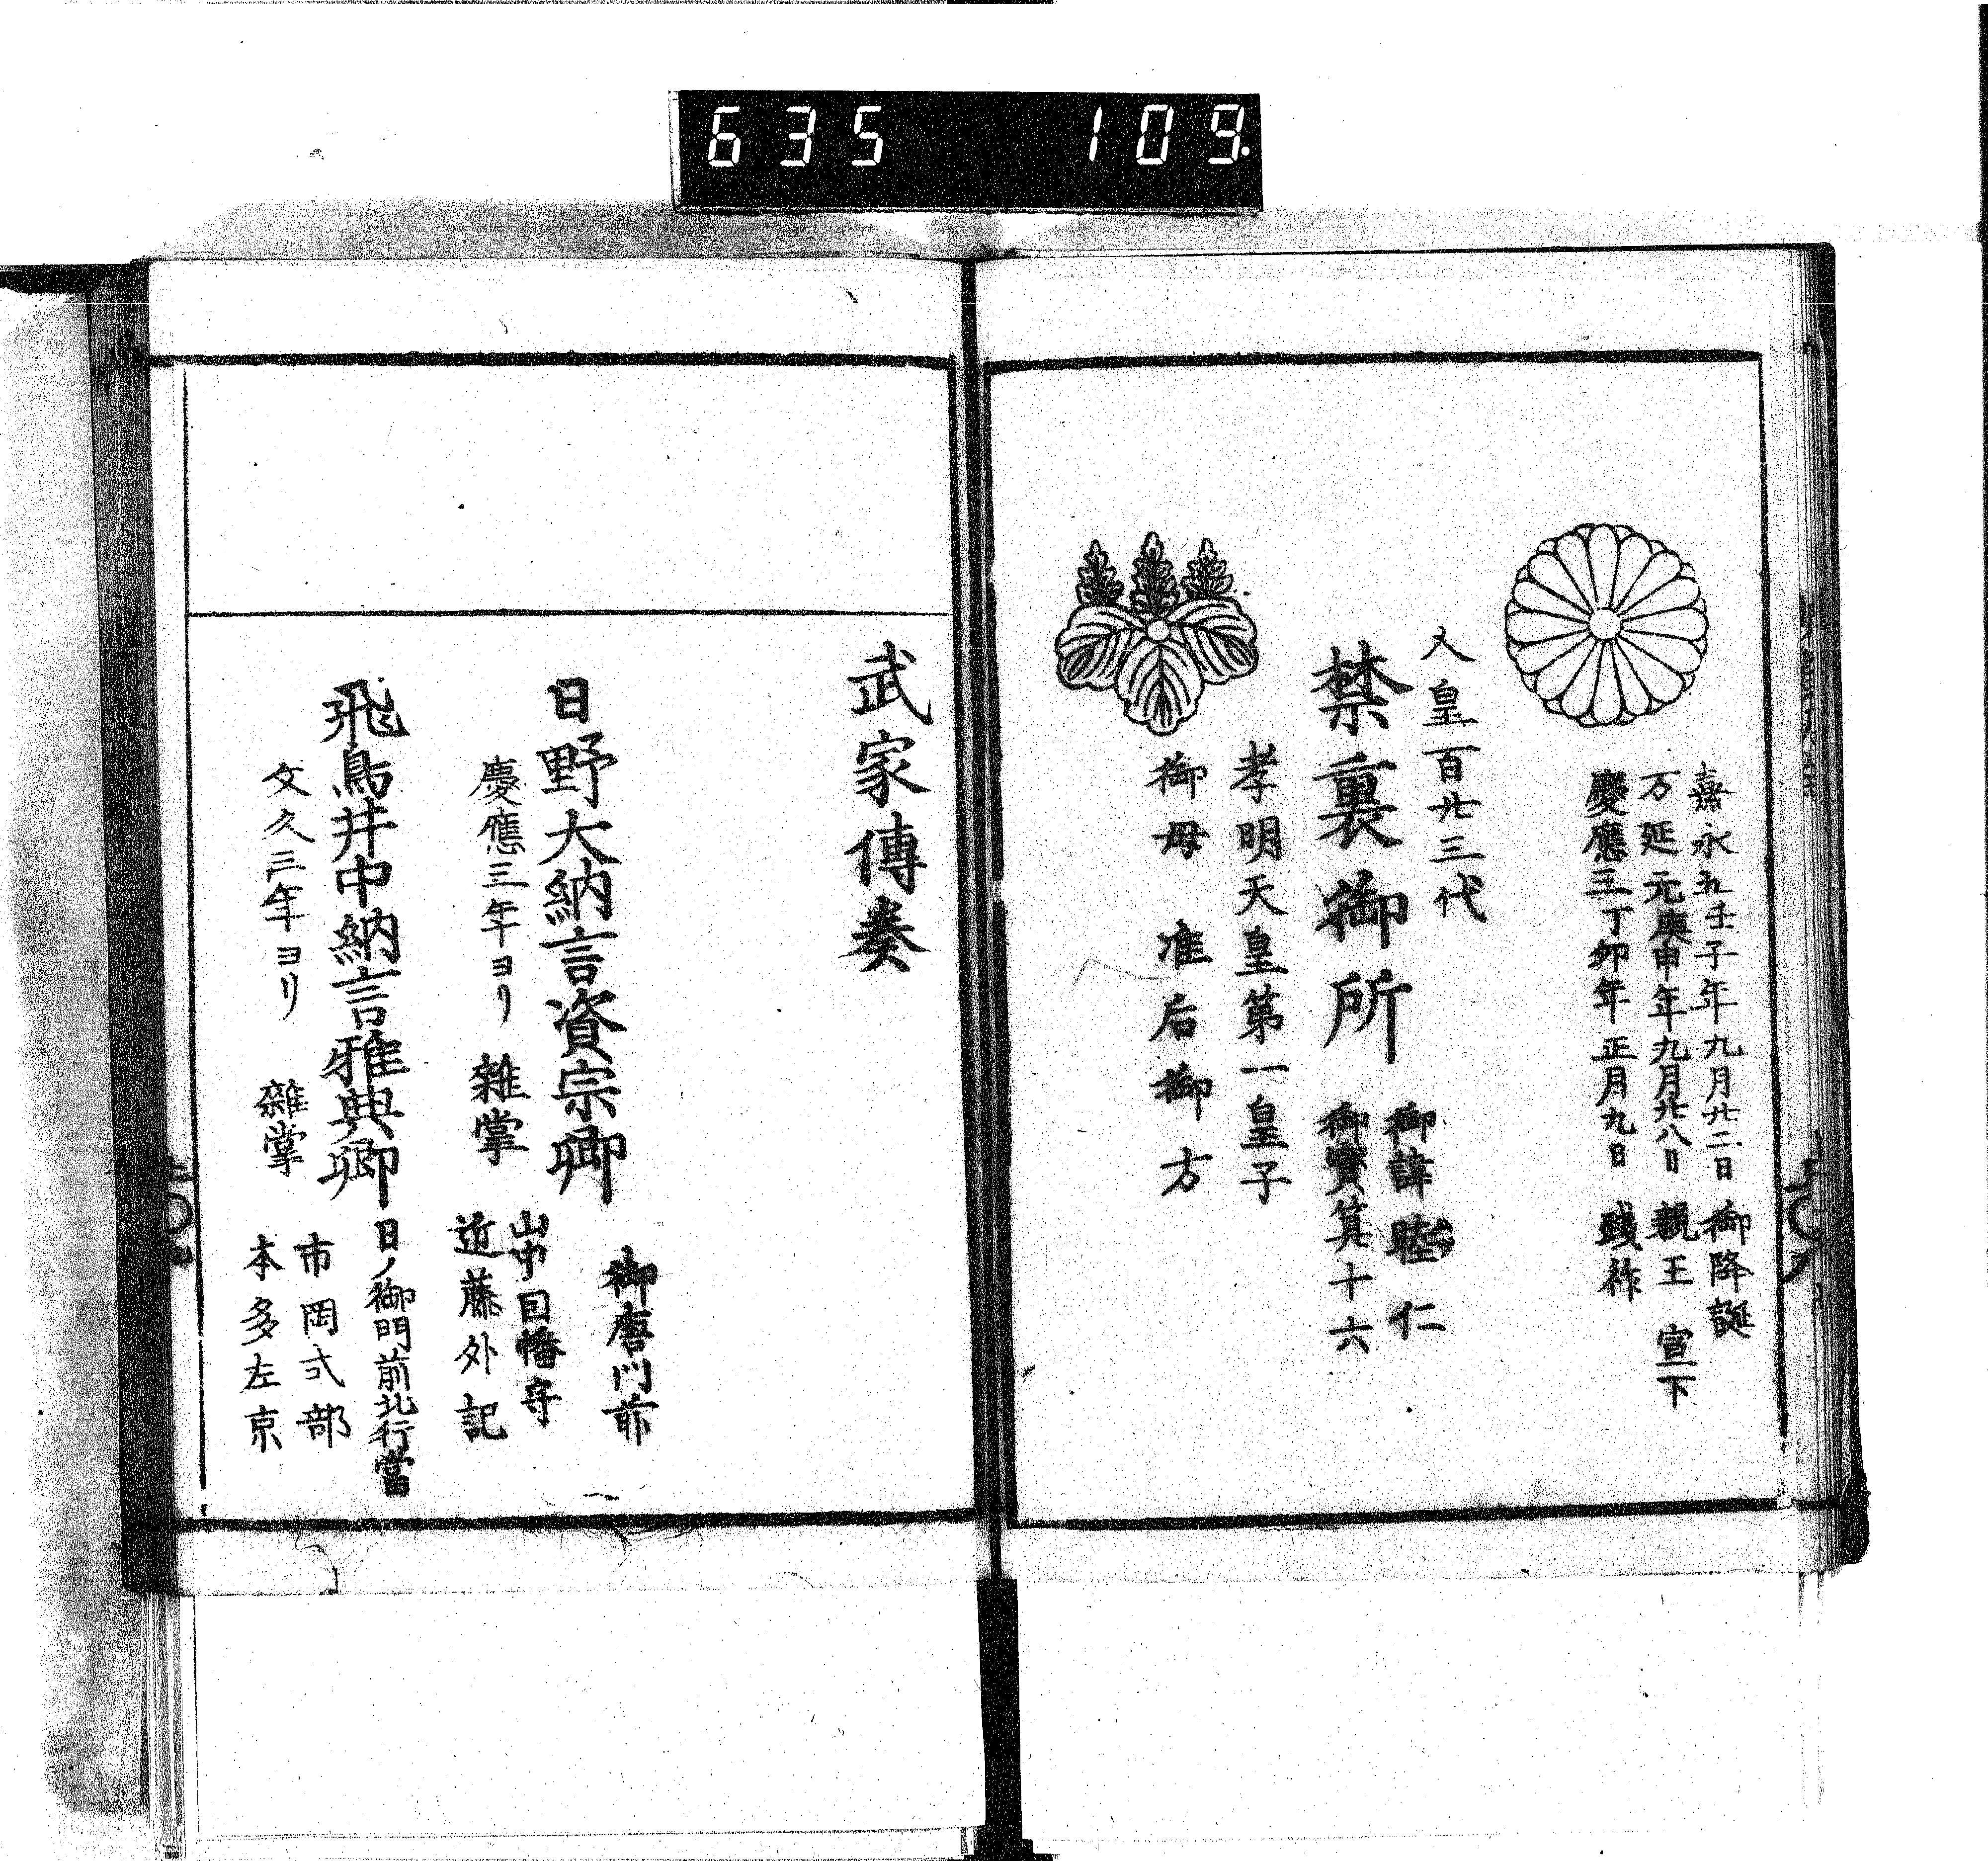 635 109.
嘉永五壬子年九月廿二日 御降誕
万延元庚申年九月廿八日 親王 宣下
慶應三丁卯年正月九日 踐祚
人皇百廿三代
禁裏御所
御諱睦仁
御寳算十六
孝明天皇第一皇子
御母 准后御方
武家傳奏
御唐門前
日野大納言資宗卿
慶應三年ヨリ 雜掌
山中因幡守
近藤外記
日ノ御門前北行當
飛鳥井中納言雅典卿
文久三年ヨリ 雜掌
市岡式部
本多左京